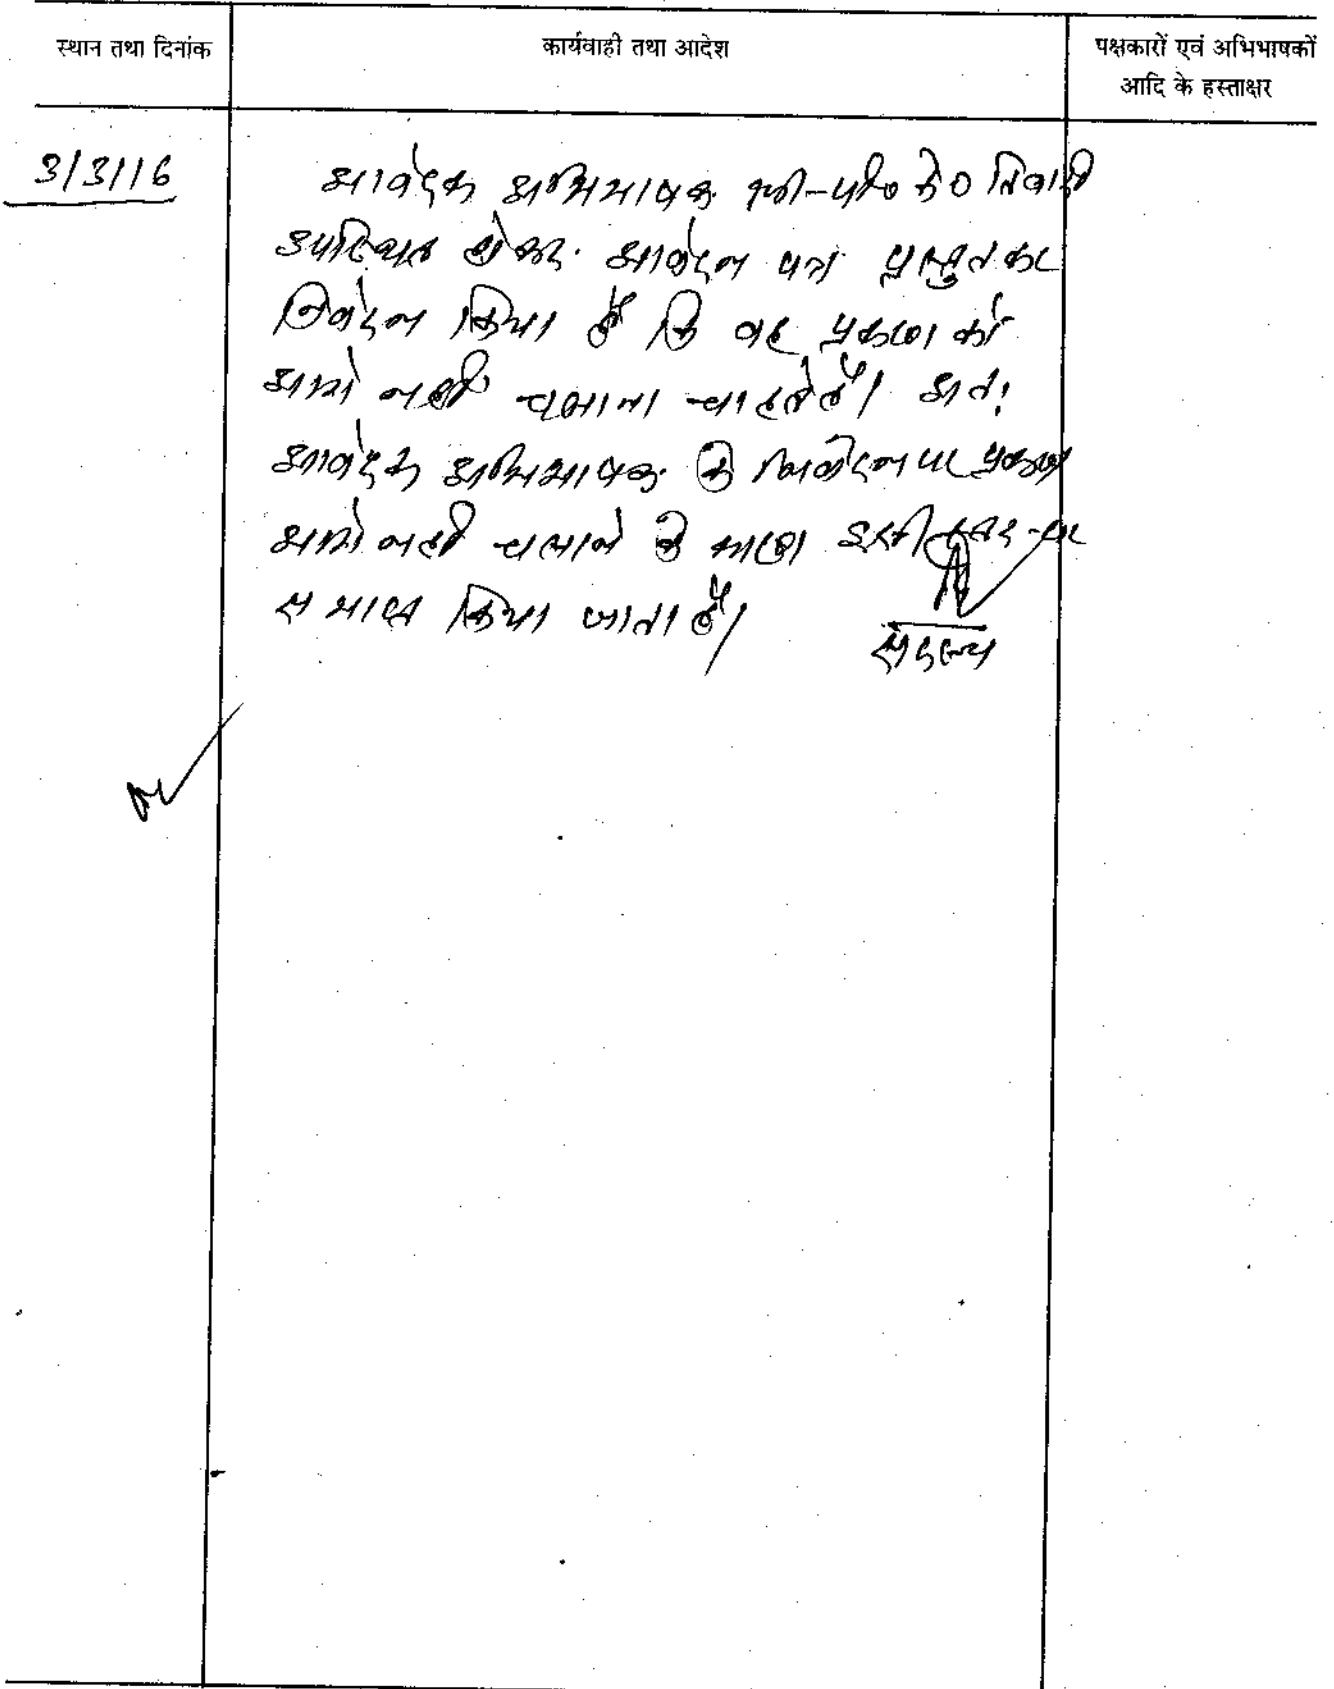 स्थान तथा दिनांक
कार्यवाही तथा आदेश
पक्षकारों एवं अभिभाषकों
आदि के हस्ताक्षर
3/3/16
आवेदक अभिभाषक श्री पी० के० तिवारी
उपस्थित होकर आवेदन पत्र प्रस्तुत कर
निवेदन किया है कि वह प्रकरण को
आगे नहीं चलाना चाहते हैं। अतः
आवेदक अभिभाषक के निवेदन पर प्रकरण
आगे नहीं चलाने के कारण इसी स्तर पर
समाप्त किया जाता है।
सदस्य